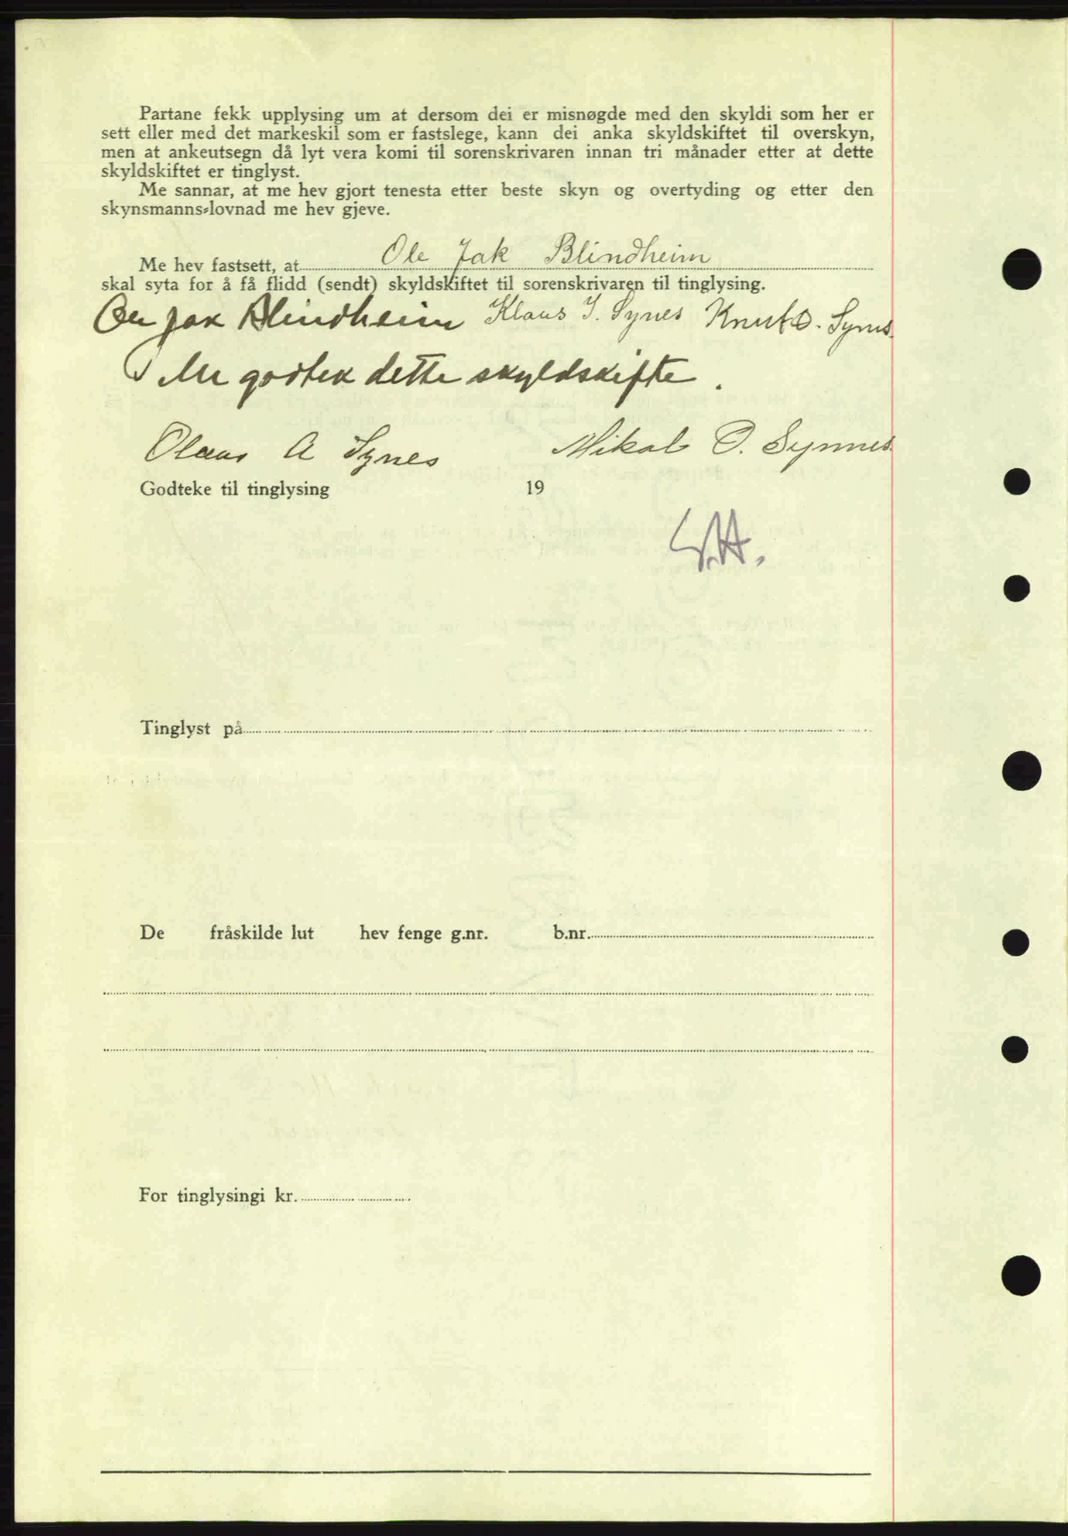 Partane fekk upplysing um at dersom dei er misnøgde med den skyldi som her er
sett eller med det markeskil som er fastslege, kann dei anka skyldskiftet til overskyn,
men at ankeutsegn då lyt vera komi til sorenskrivaren innan tri månader etter at dette
skyldskiftet er tinglyst.
Me sannar, at me hev gjort tenesta etter beste skyn og overtyding og etter den
skynsmanns-lovnad me hev gjeve.
Me hev fastsett, at Ole Jak Blindheim
skal syta for å få flidd (sendt) skyldskiftet til sorenskrivaren til tinglysing.
Ole Jak Blindheim Klaus I. Synes Knut O. Synes
Me godtek dette skyldskifte.
Olaus A Synes Mikal O. Synnes
Godteke til tinglysing 19
Tinglyst på
De fråskilde lut hev fenge g.nr. b.nr.
For tinglysingi kr.